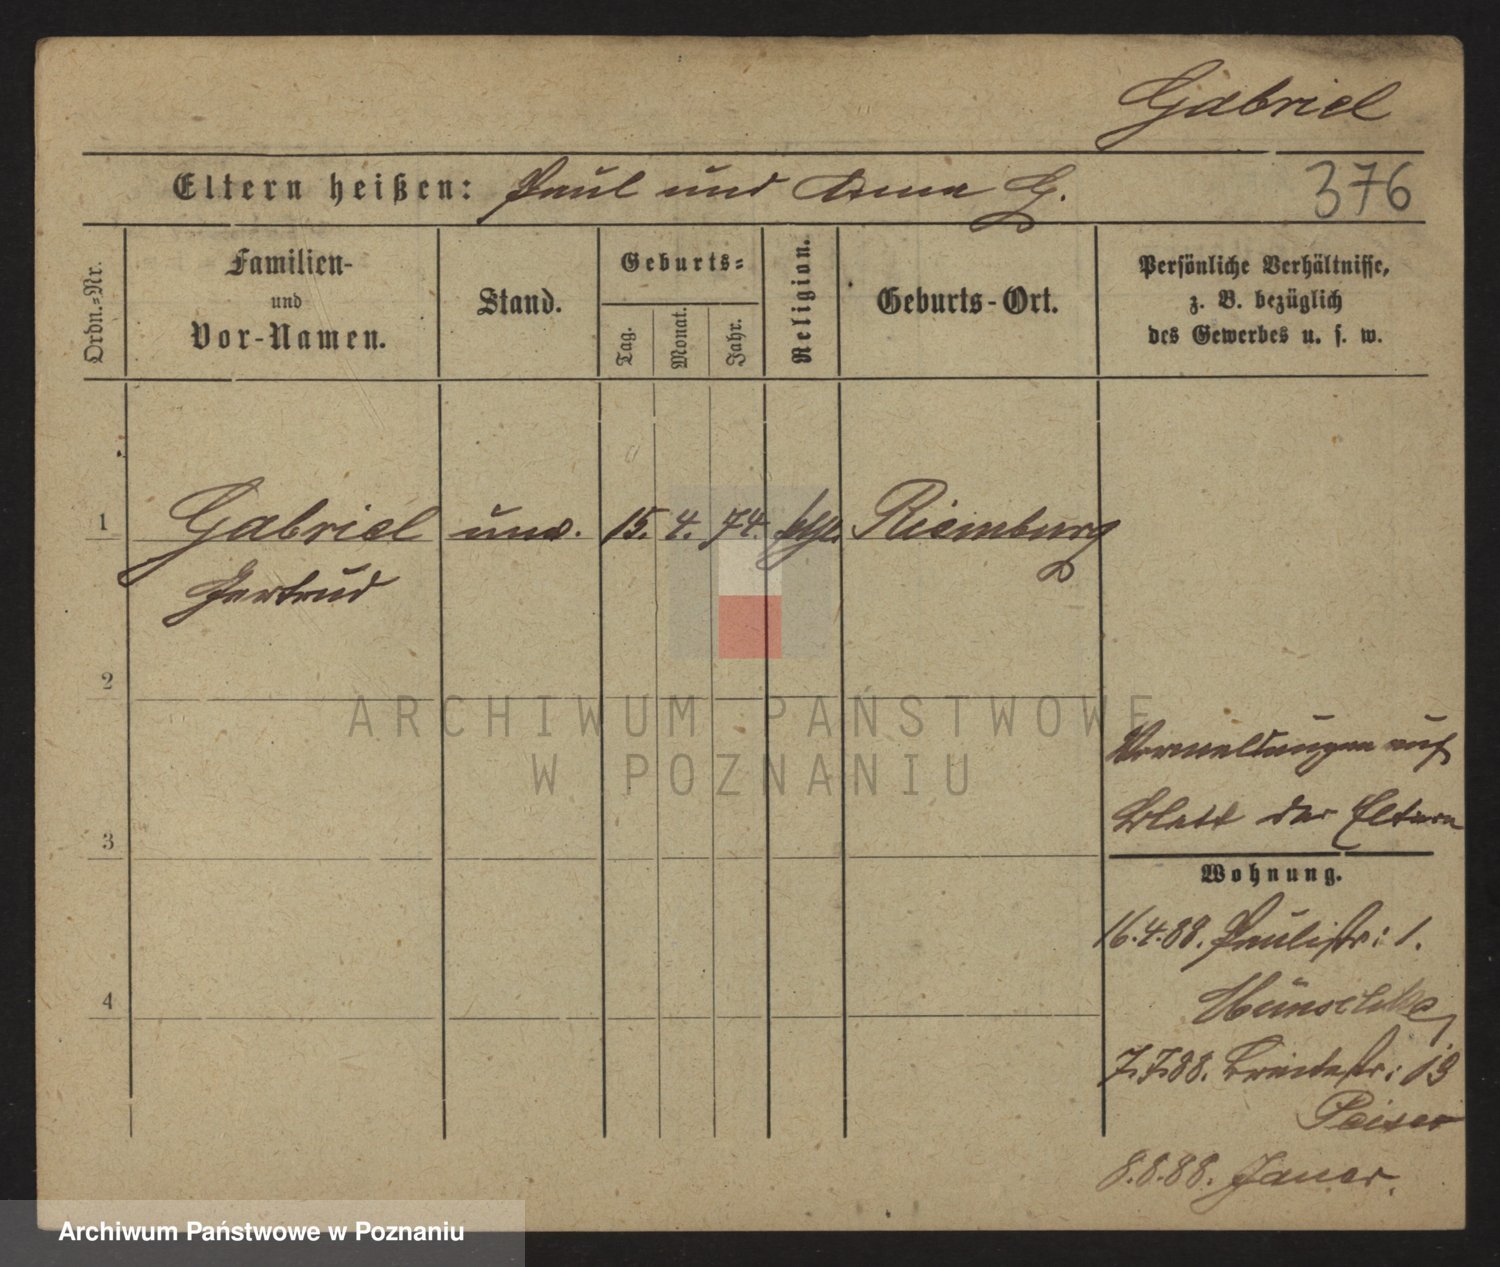 Gabriel
Eltern heißen: Paul und Anna G.
376
Ordn.-Nr.
Familien-
und
Vor-Namen.
Stand.
Geburts-
Tag.
Monat.
Jahr.
Religion.
Geburts-Ort.
Persönliche Verhältnisse,
z. B. bezüglich
des Gewerbes u. s. w.
1
Gabriel unv. 15. 4. 74. kath. Riemburg
Gertrud
2
ARCHIWUM PAŃSTWOWE
W POZNANIU
auf
3
Blatt der Eltern
Wohnung.
16.4.88. Paulistr: 1.
4
7.7.88. Breitestr: 19
Peiser
8.8.88. Jauer.
Archiwum Państwowe w Poznaniu